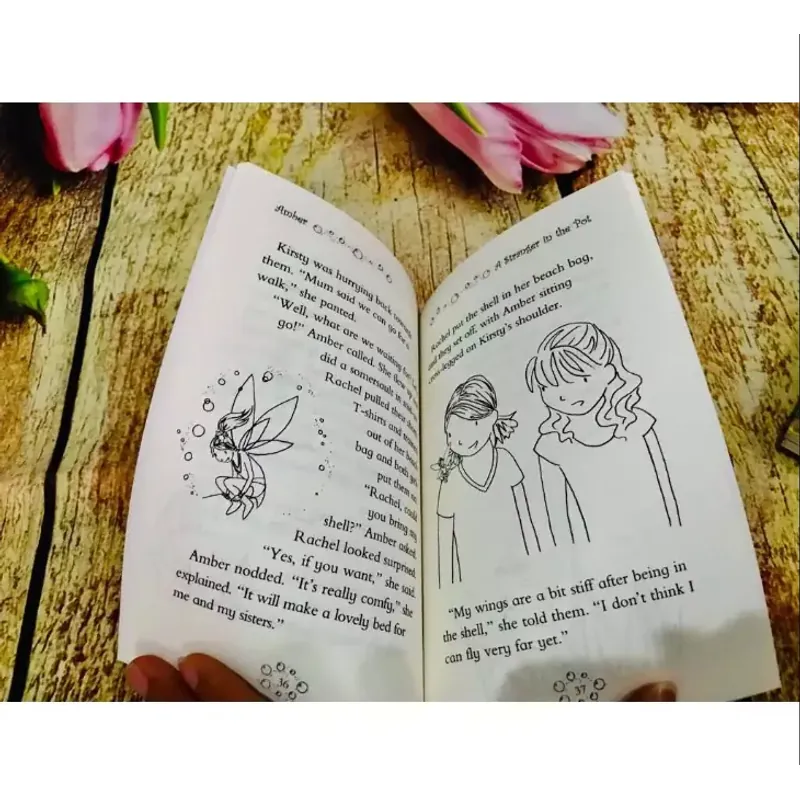 Amber
Kirsty was hurrying back towards
them. "Mum said we can go for a
walk," she panted.
"Well, what are we waiting
go!" Amber called. She flew up
did a somersault in
Rachel pulled their
T-shirts and
out of her
bag and both
put them on.
"Rachel, could
you bring my
shell?" Amber asked.
Rachel looked surprised.
"Yes, if you want," she said.
Amber nodded. "It's really comfy," she
explained. "It will make a lovely bed for
me and my sisters."
36
A Stranger in the Pot
Rachel put the shell in her beach bag,
and they set off, with Amber sitting
cross-legged on Kirsty's shoulder.
"My wings are a bit stiff after being in
the shell," she told them. "I don't think I
can fly very far yet."
37